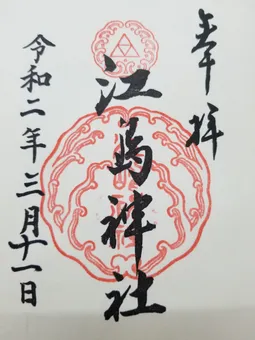 奉拝
江島神社
令和二年三月十一日